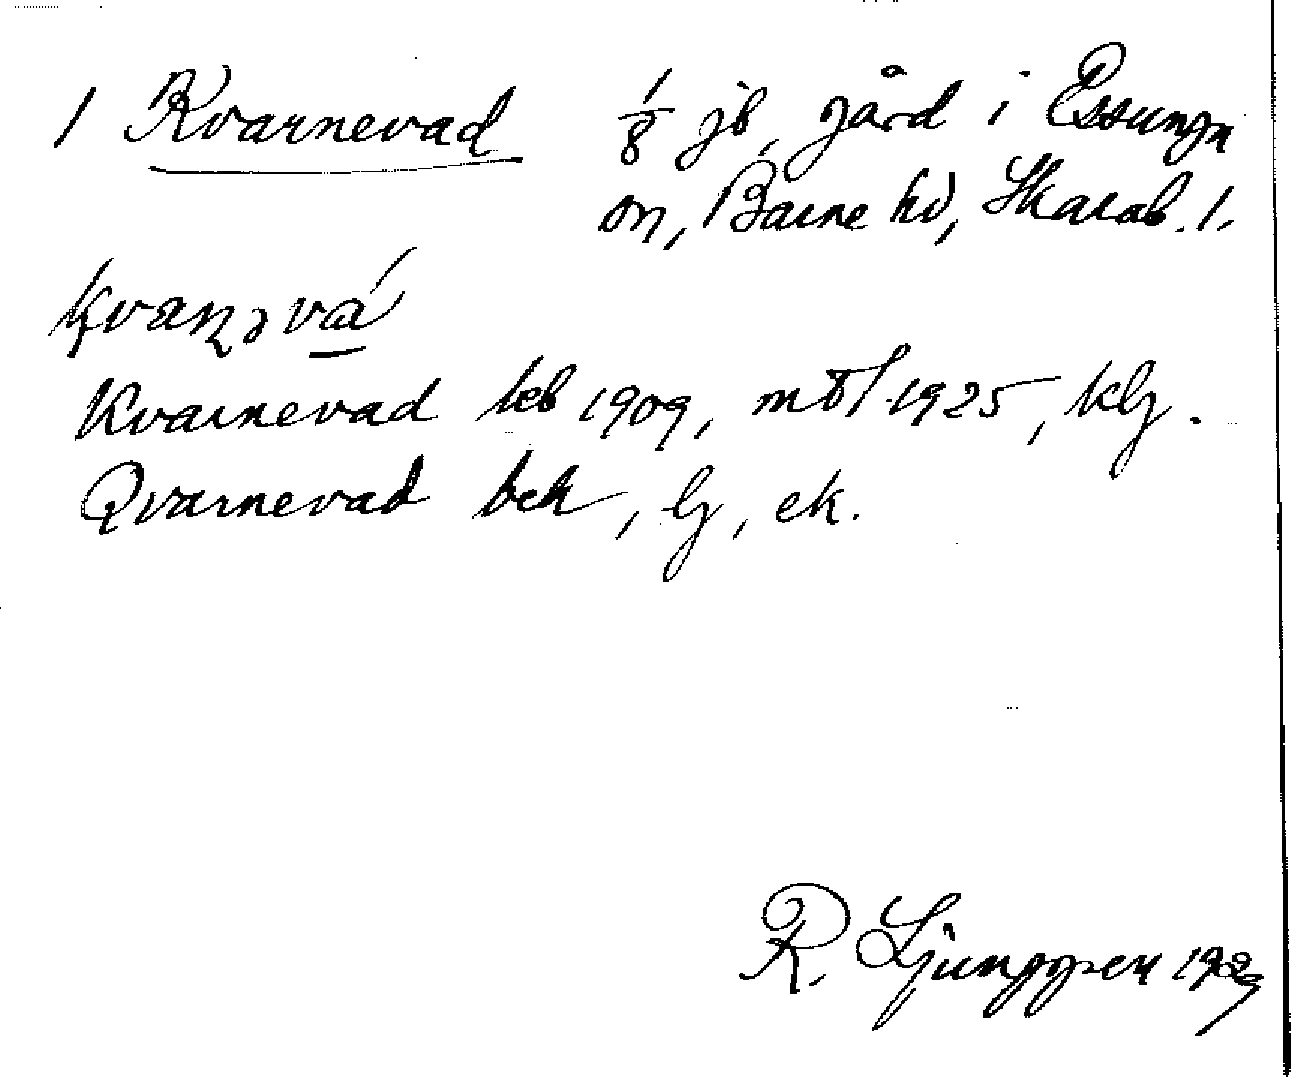 1 Kvarnevad 1/8 jb, gård i Essunga
sn, Barne hd, Skarab. l.
Kvarnevad 1909, 1925, klj.
Qvarnevad bek, lj, ek.
R. Ljunggren